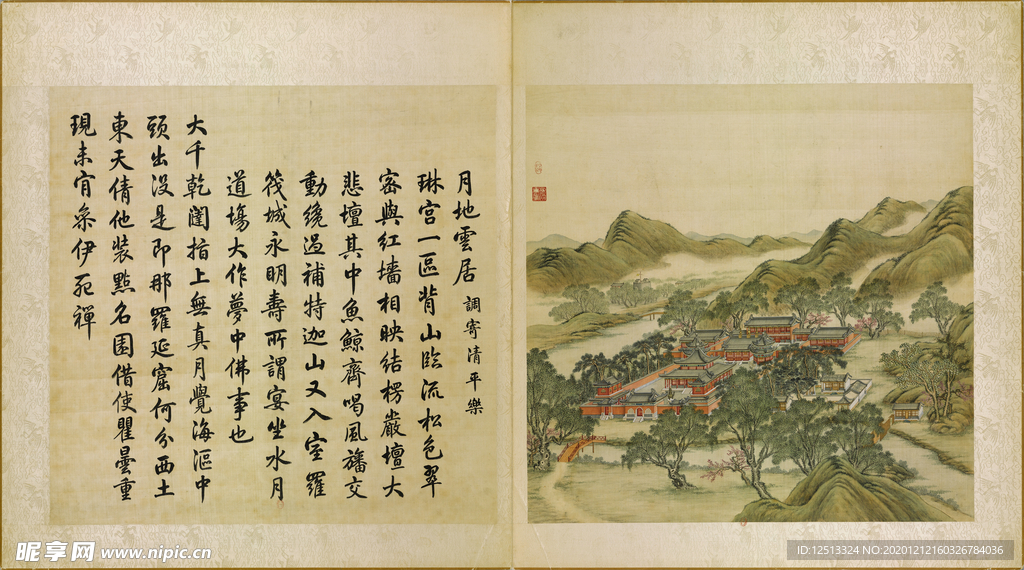 月地雲居 調寄清平樂
琳宫一區背山臨流松色翠
密與紅墻相映結楞嚴壇大
悲壇其中魚鯨齊喝風旛交
動纔過補特迦山又入室羅
筏城永明壽所謂宴坐水月
道塲大作夢中佛事也
大千乾闥指上無真月覺海漚中
頭出没是即那羅延窟何分西土
東天倩他裝點名園借使瞿曇重
現未肓參伊死禪
昵享网 www.nipic.cn
ID:12513324 NO:20201212160326784036